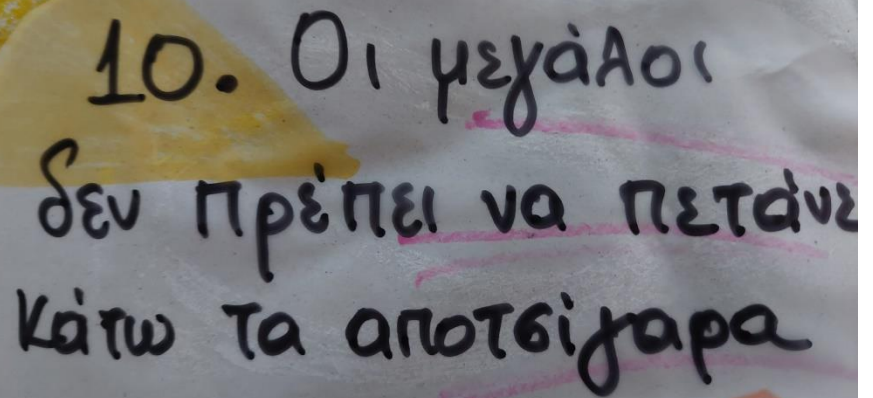 10. Οι μεγάλοι
δεν πρέπει να πετάνε
κάτω τα αποτσίγαρα